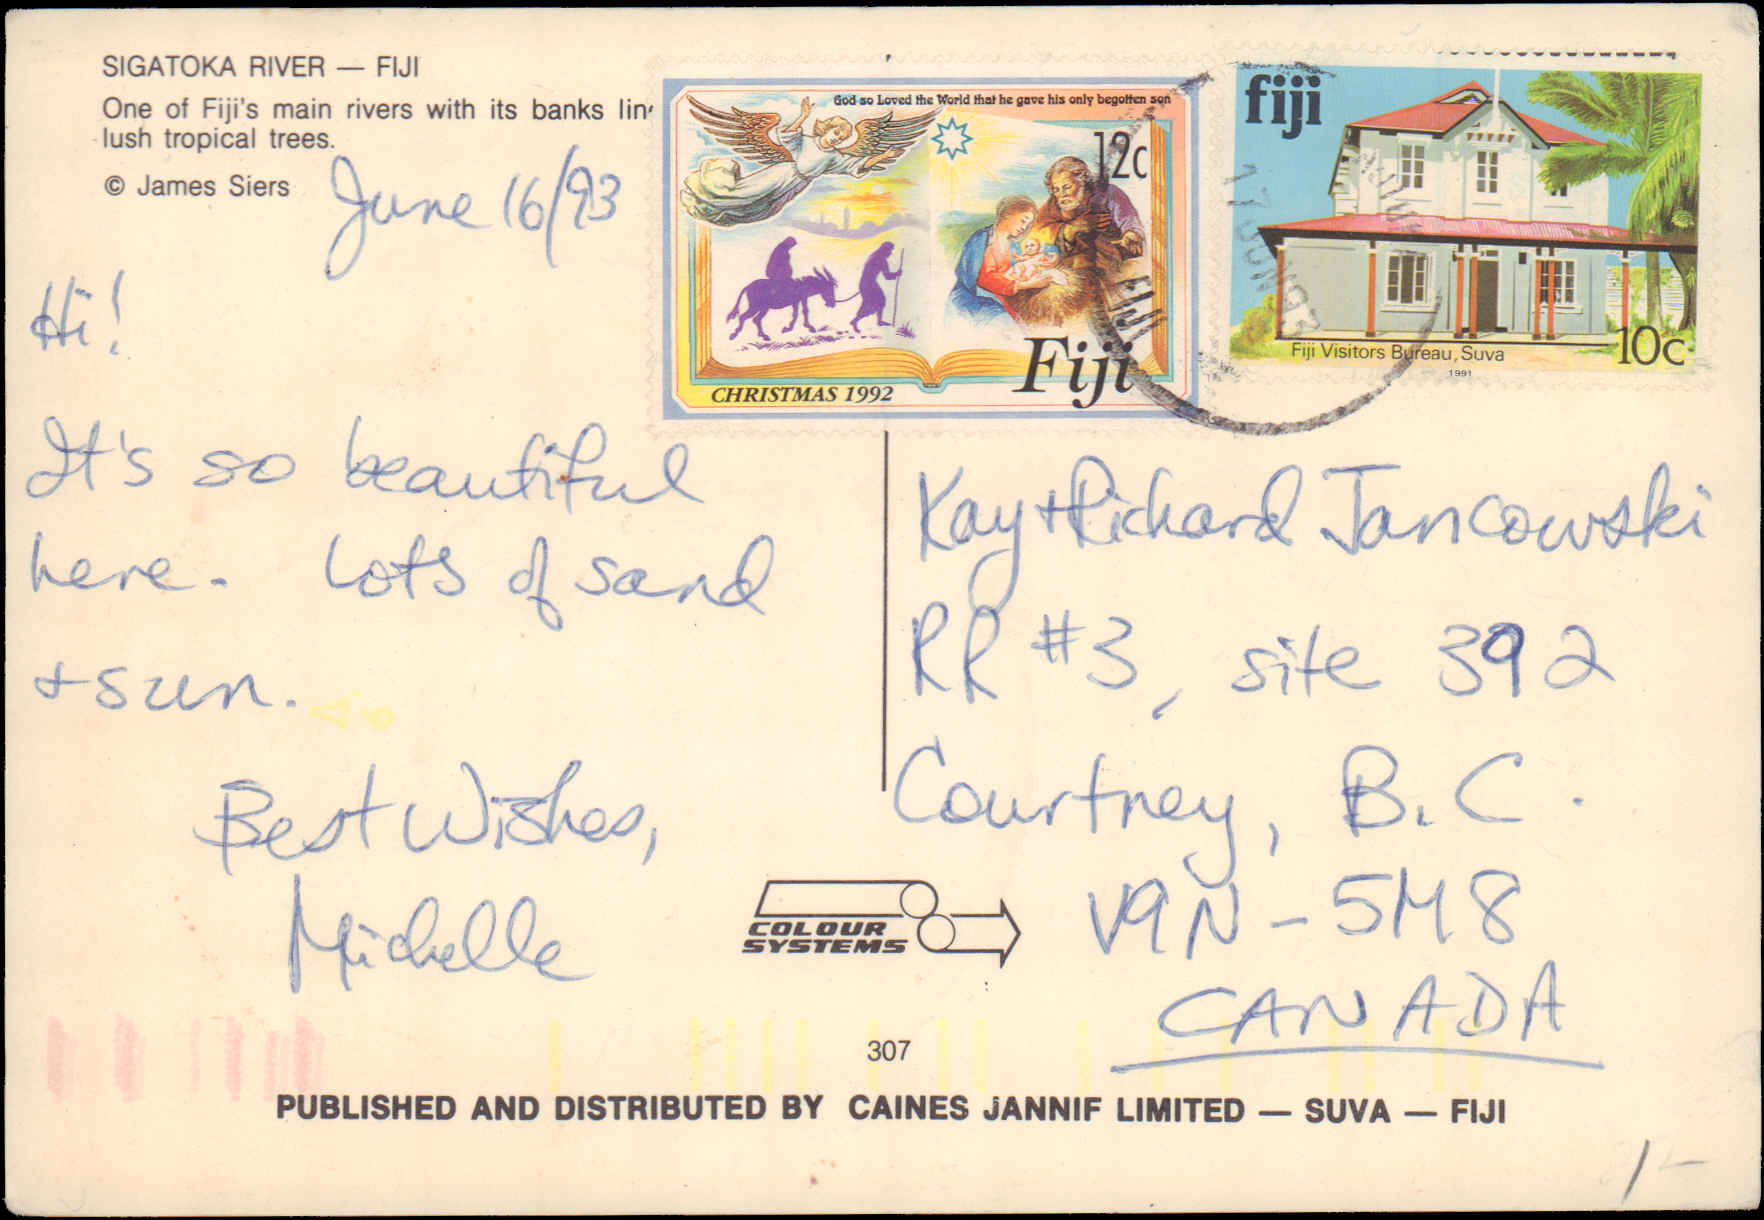 SIGATOKA RIVER — FIJI
One of Fiji's main rivers with its banks lin
lush tropical trees.
© James Siers
June 16/93
Hi!
It's so beautiful
here. Lots of sand
+ sun.
Best Wishes,
Michelle
God so Loved the World that he gave his only begotten son
12c
CHRISTMAS 1992
Fiji
fiji
Fiji Visitors Bureau, Suva
10c
1991
17 JUN 93
FIJI
Kay + Richard Jancowski
RR #3, site 392
Courtney, B.C.
V9N - 5M8
CANADA
COLOUR
SYSTEMS
307
PUBLISHED AND DISTRIBUTED BY CAINES JANNIF LIMITED — SUVA — FIJI
1/-